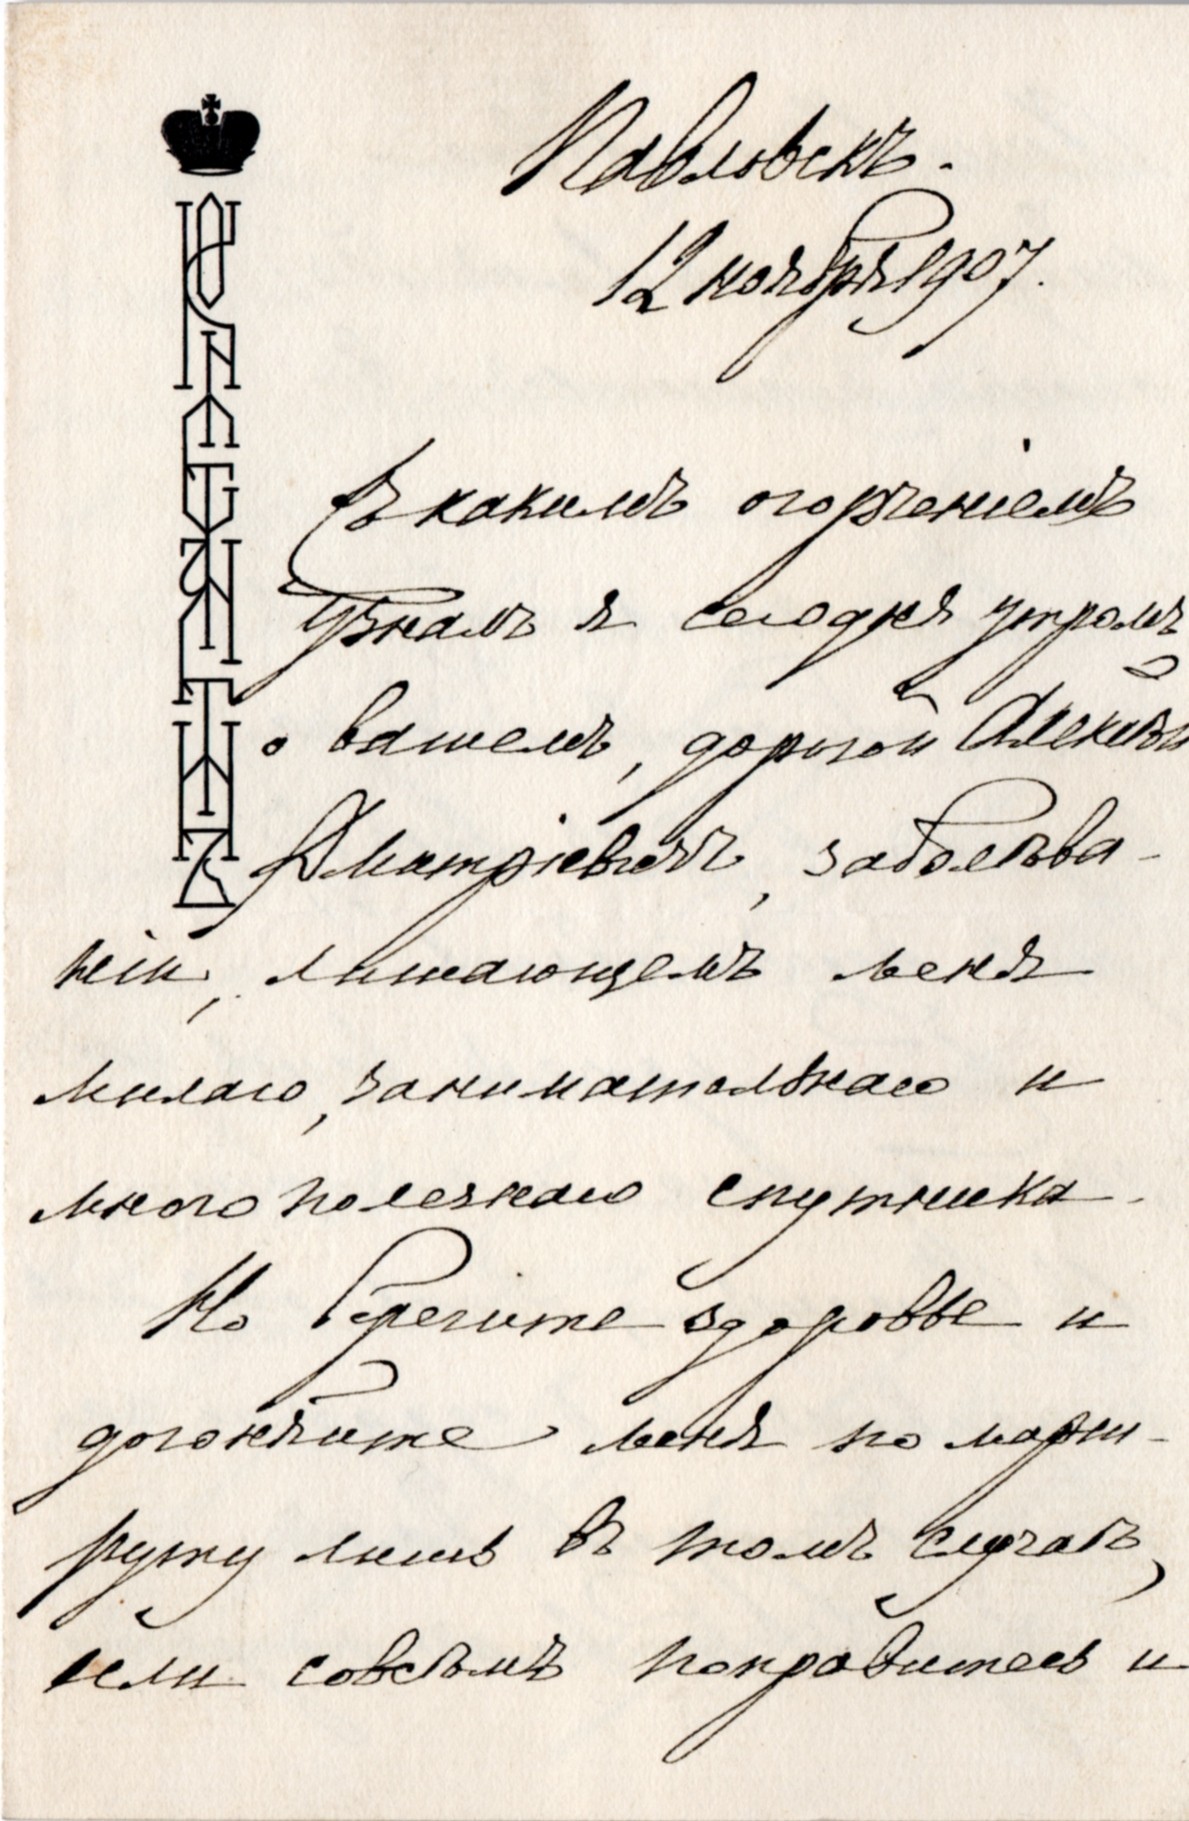 КОНСТАНТИНЪ
Павловскъ.
12 ноября 1907.
Съ какимъ огорченіемъ
узналъ я сегодня утромъ
о вашемъ, дорогой Алексѣй
Дмитріевичъ, заболѣва-
ніи, лишающемъ меня
милаго, занимательнаго и
многополезнаго спутника.
Но берегите здоровье и
догоняйте меня по марш-
руту лишь въ томъ случаѣ,
если совсѣмъ поправитесь и